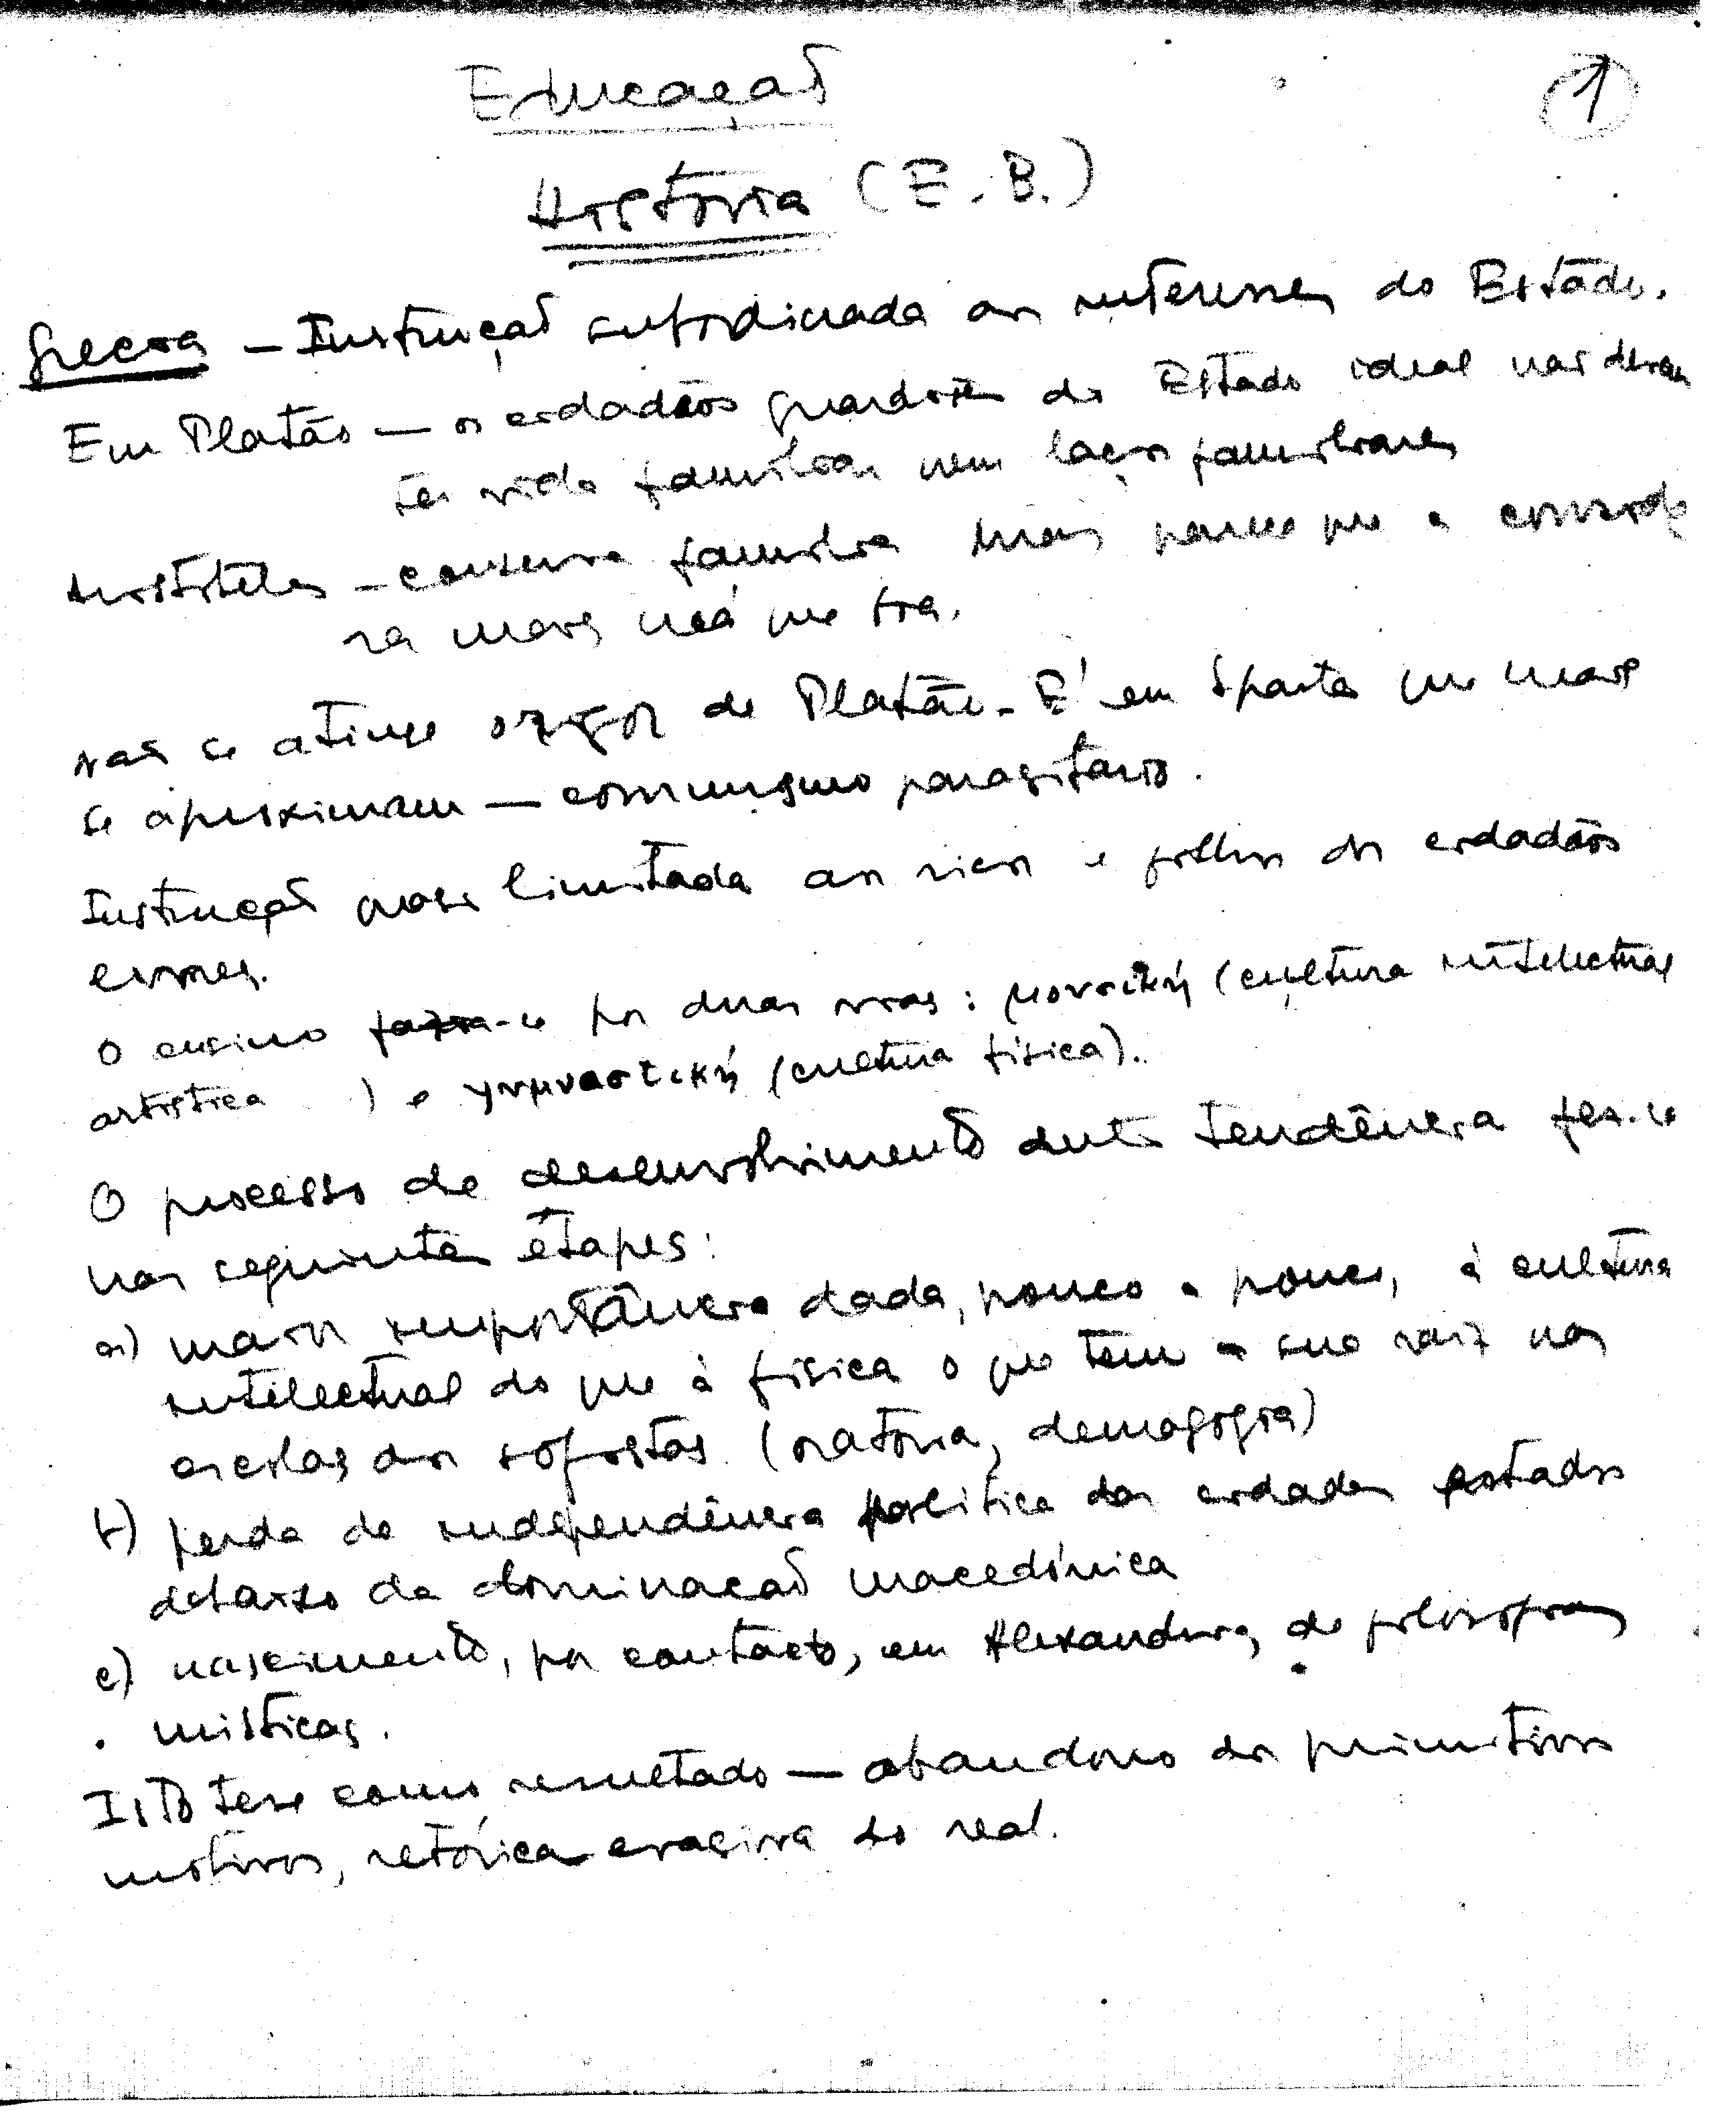 Educação
1
História (E. B.)
Grecia — Instrução subordinada aos interesses do Estado.
Em Platão — os cidadãos guardas do Estado ideal não devem
ter vida familiar nem laços familiares
Aristóteles — conserva família mas parece que a conside
ra mais má que boa.
Não se atinge o rigor de Platão. É em Sparta que mais
se aproximam — comunismo parasitário.
Instrução quase limitada aos ricos e filhos dos cidadãos
livres.
O ensino fazia-se por duas vias: μουσική (cultura intelectual
artística ) e γυμναστική (cultura física).
O processo de desenvolvimento desta tendência fez-se
nas seguintes étapes:
a) maior importância dada, pouco a pouco, à cultura
intelectual do que à física o que tem a sua raiz nas
escolas dos sofistas (oratória, demagogia)
b) perda da independência política das cidades estados
debaixo da dominação macedónica
c) nascimento, por contacto, em Alexandria, de filosofias
místicas.
Isto teve como resultado — abandono dos primitivos
motivos, retórica evasiva do real.